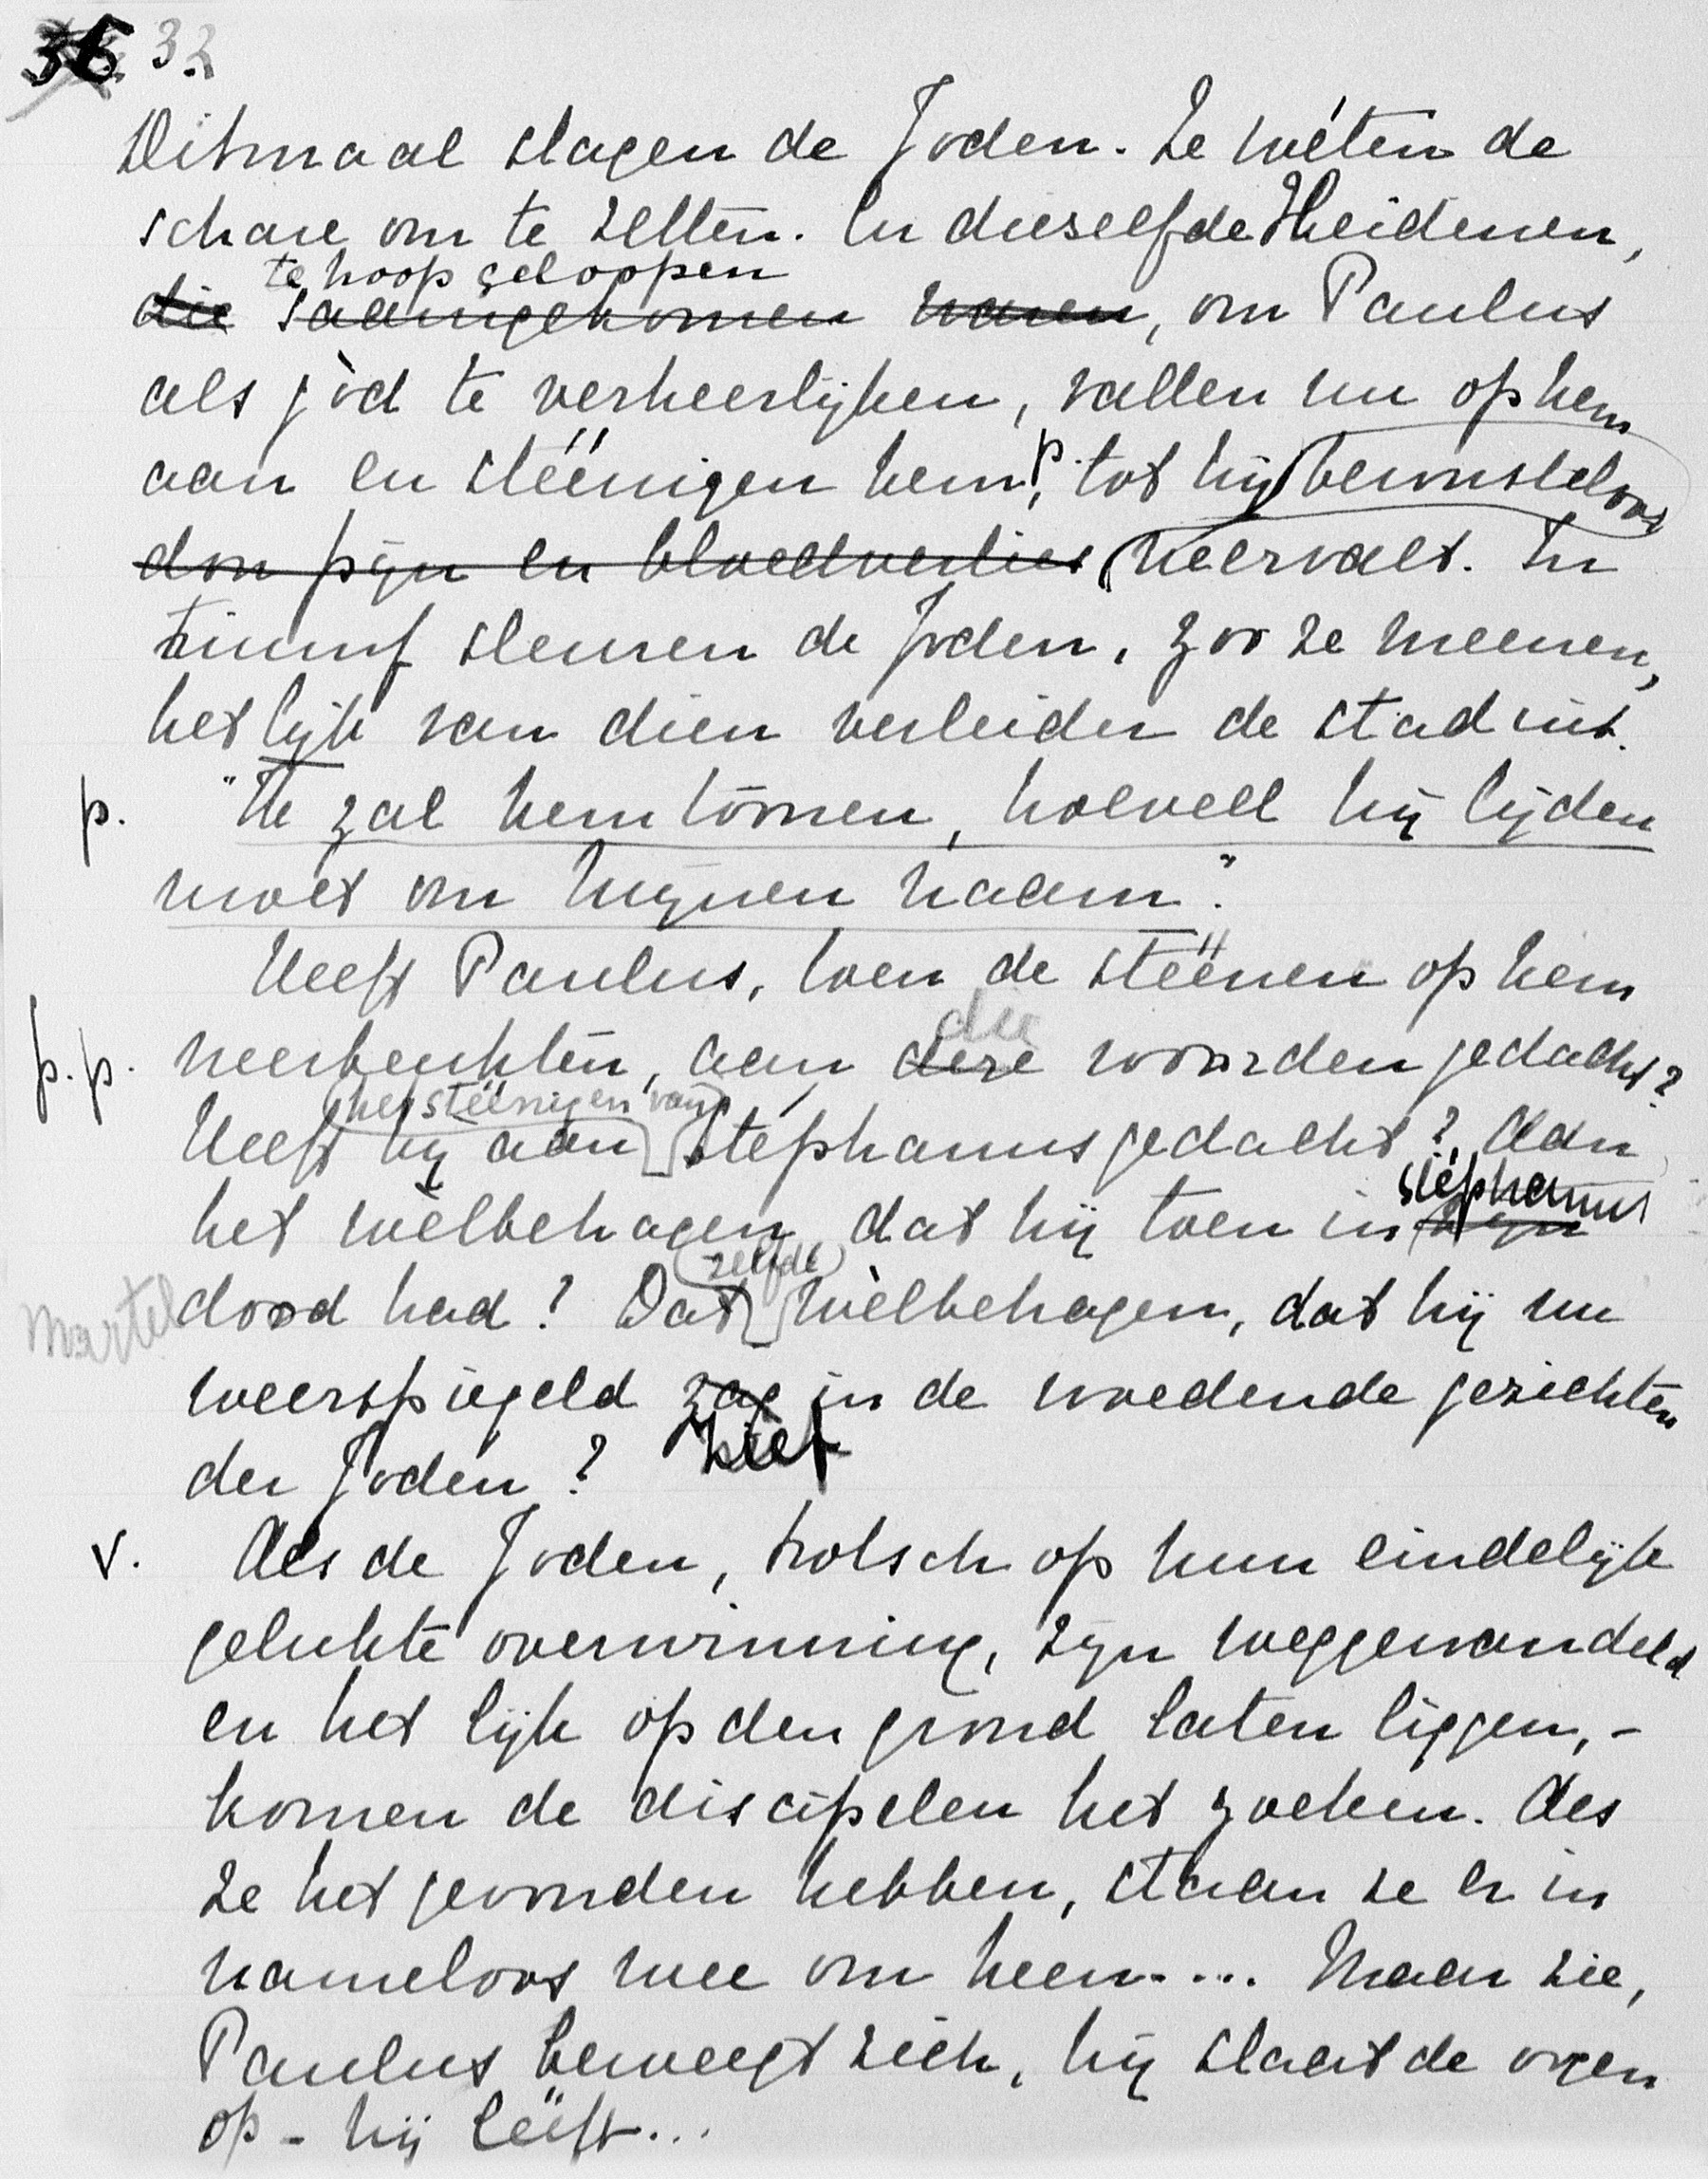 36. 32
Ditmaal slagen de Joden. Ze wéten de
schare om te zetten. En diezelfde Heidenen,
te hoop geloopen
die saamgekomen waren, om Paulus
als gòd te verheerlijken, vallen nu op hem
aan en stéénigen hem, p. tot hij bewusteloos
door pijn en bloedverlies neervalt. In
triumf sleuren de Joden, zoo ze meenen,
het lijk van dien verleider de stad uit.
p. "Ik zal hem tóónen, hoeveel hij lijden
moet om mijnen naam".
Heeft Paulus, toen de stéénen op hem
die
p.p. neerbeukten, aan deze woorden gedacht?
het stéénigen van
Heeft hij aan Stéphanus gedacht? Aan
Stéphanus
het wèlbehagen, dat hij toen in zijn
zelfde
Martel dood had? Dat wèlbehagen, dat hij nu
weerspiegeld zag in de woedende gezichten
der Joden? ziet
v. Als de Joden, trotsch op hun eindelijk
gelukte overwinning, zijn weggewandeld
en het lijk op den grond laten liggen, -
komen de discipelen het zoeken. Als
ze het gevonden hebben, staan ze er in
nameloos wee om heen.... Maar zie,
Paulus beweegt zich, hij slaat de oogen
op - hij lééft...